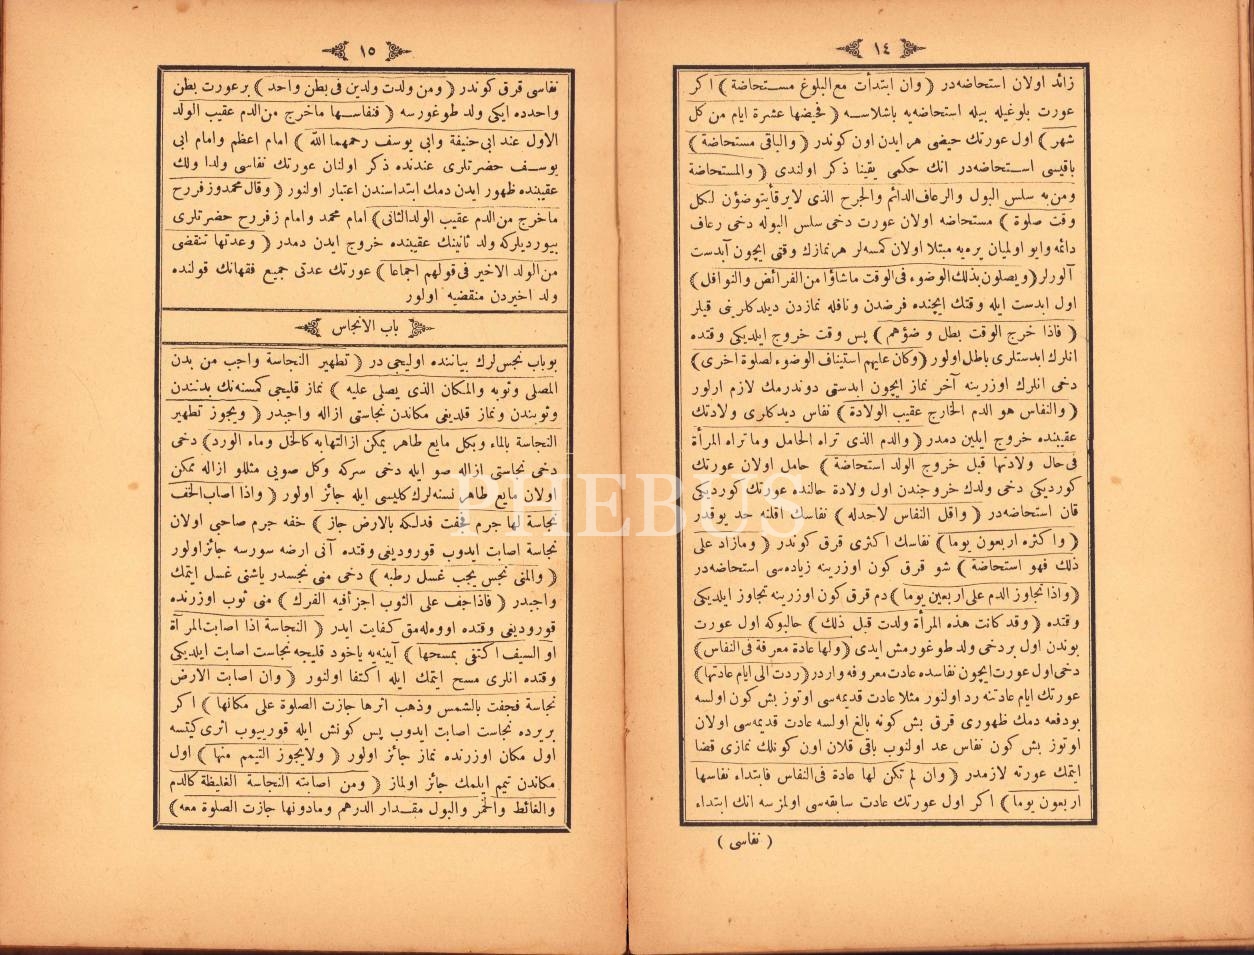 ١٤
زائد اولان استحاضه‌در ( وان ابتدأت مع البلوغ مستحاضة ) اكر
عورت بلوغيله بيله استحاضه‌يه باشلاسه ( فحيضها عشرة ايام من كل
شهر ) اول عورتك حيضى هر ايدن اون كوندر ( والباقى مستحاضة )
باقيسى استحاضه‌در انك حكمى يقينا ذكر اولندى ( والمستحاضة
ومن به سلس البول والرعاف الدائم والجرح الذى لا يرقأ يتوضؤن لكل
وقت صلوة ) مستحاضه اولان عورت دخى سلس البوله دخى رعاف
دائمه وايو اولميان يره‌يه مبتلا اولان كمسه‌لر هر نمازك وقتى ايچون آبدست
آلورلر ( ويصلون بذلك الوضوء فى الوقت ماشاؤا من الفرائض والنوافل )
اول ابدست ايله وقتك ايچنده فرضدن ونافله نمازدن ديلدكلرينى قيلر
( فاذا خرج الوقت بطل وضؤهم ) پس وقت خروج ايلديكى وقتده
انلرك ابدستلرى باطل اولور ( وكان عليهم استيناف الوضوء لصلوة اخرى )
دخى انلرك اوزرينه آخر نماز ايچون ابدستى دوندرمك لازم ارلور
( والنفاس هو الدم الخارج عقيب الولادة ) نفاس ديدكلرى ولادتك
عقيبنده خروج ايلين دمدر ( والدم الذى تراه الحامل وما تراه المرأة
فى حال ولادتها قبل خروج الولد استحاضة ) حامل اولان عورتك
كورديكى دخى ولدك خروجندن اول ولادة حالنده عورتك كورديكى
قان استحاضه‌در ( واقل النفاس لاحدله ) نفاسك اقلنه حد يوقدر
( واكثره اربعون يوما ) نفاسك اكثرى قرق كوندر ( ومازاد على
ذلك فهو استحاضة ) شو قرق كون اوزرينه زياده‌سى استحاضه‌در
( واذا تجاوز الدم على اربعين يوما ) دم قرق كون اوزرينه تجاوز ايلديكى
وقتده ( وقد كانت هذه المرأة ولدت قبل ذلك ) حالبوكه اول عورت
بوندن اول بردخى ولد طوغورمش ايدى ( ولها عادة معرفة فى النفاس )
دخى اول عورت ايچون نفاسده عادت معروفه واردر ( ردت الى ايام عادتها )
عورتك ايام عادتنه رد اولنور مثلا عادت قديمه‌سى اوتوز بش كون اولسه
بودفعه دمك ظهورى قرق بش كونه بالغ اولسه عادت قديمه‌سى اولان
اوتوز بش كون نفاس عد اولنوب باقى قلان اون كونلك نمازى قضا
ايتمك عورته لازمدر ( وان لم تكن لها عادة فى النفاس فابتداء نفاسها
اربعون يوما ) اكر اول عورتك عادت سابقه‌سى اولمزسه انك ابتداء
( نفاسى )
١٥
نفاسى قرق كوندر ( ومن ولدت ولدين فى بطن واحد ) بر عورت بطن
واحدده ايكى ولد طوغورسه ( فنفاسها ماخرج من الدم عقيب الولد
الاول عند ابى حنيفة وابى يوسف رحمهما الله ) امام اعظم وامام ابى
يوسف حضرتلرى عندنده ذكر اولنان عورتك نفاسى ولدا ولك
عقيبنده ظهور ايدن دمك ابتداسندن اعتبار اولنور ( وقال محمد وزفر رح
ماخرج من الدم عقيب الولد الثانى ) امام محمد وامام زفر رح حضرتلرى
بيورديلركه ولد ثانينك عقيبنده خروج ايدن دمدر ( وعدتها تنقضى
من الولد الاخير فى قولهم اجماعا ) عورتك عدتى جميع فقهانك قولنده
ولد اخيردن منقضيه اولور
باب الانجاس
بو باب نجس لرك بياننده اوليجى در ( تطهير النجاسة واجب من بدن
المصلى وثوبه والمكان الذى يصلى عليه ) نماز قليجى كمسنه‌نك بدنندن
وثوبندن ونماز قلديغى مكاندن نجاستى ازاله واجبدر ( ويجوز تطهير
النجاسة بالماء وبكل مايع طاهر يمكن ازالتها به كالخل وماء الورد ) دخى
دخى نجاستى ازاله صو ايله دخى سركه وكل صويى مثللو ازاله ممكن
اولان مايع طاهر نسنه‌لرك كليسى ايله جائز اولور ( واذا اصاب الخف
نجاسة لها جرم فجفت فدلكه بالارض جاز ) خفه جرم صاحبى اولان
نجاسة اصابت ايدوب قوروديغى وقتده آنى ارضه سورسه جائز اولور
( والمنى نجس يجب غسل رطبه ) دخى منى نجسدر ياشنى غسل ايتمك
واجبدر ( فاذا جف على الثوب اجزأفيه الفرك ) منى ثوب اوزرنده
قوروديغى وقتده اووه‌لمق كفايت ايدر ( النجاسة اذا اصابت المرآة
او السيف اكتفى بمسحها ) آيينه‌يه ياخود قليجه نجاست اصابت ايلديكى
وقتده انلرى مسح ايتمك ايله اكتفا اولنور ( وان اصابت الارض
نجاسة فجفت بالشمس وذهب اثرها جازت الصلوة على مكانها ) اكر
بر يرده نجاست اصابت ايدوب پس كونش ايله قوريیوب اثرى كيتسه
اول مكان اوزرنده نماز جائز اولور ( ولايجوز التيمم منها ) اول
مكاندن تيمم ايلمك جائز اولماز ( ومن اصابته النجاسة الغليظة كالدم
والغائط والخمر والبول مقدار الدرهم ومادونها جازت الصلوة معه )
PHEBUS